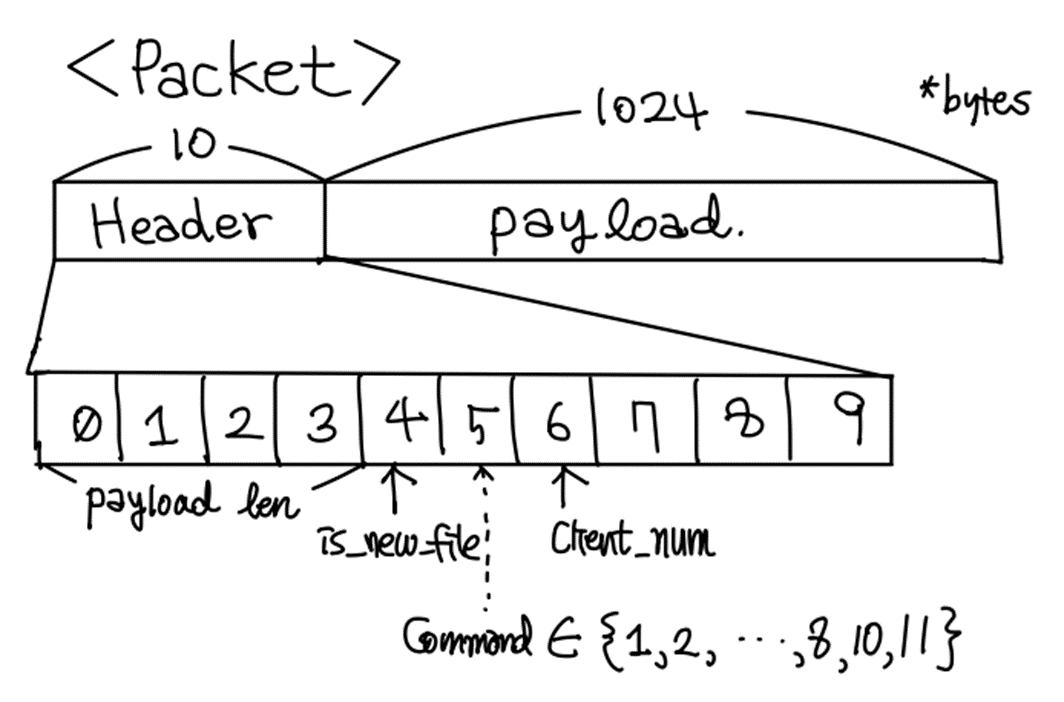 <Packet>
10 1024 *bytes
Header payload.
0 1 2 3 4 5 6 7 8 9
payload len
is_new_file Client_num
Command ∈ {1,2, ⋯,8,10,11}